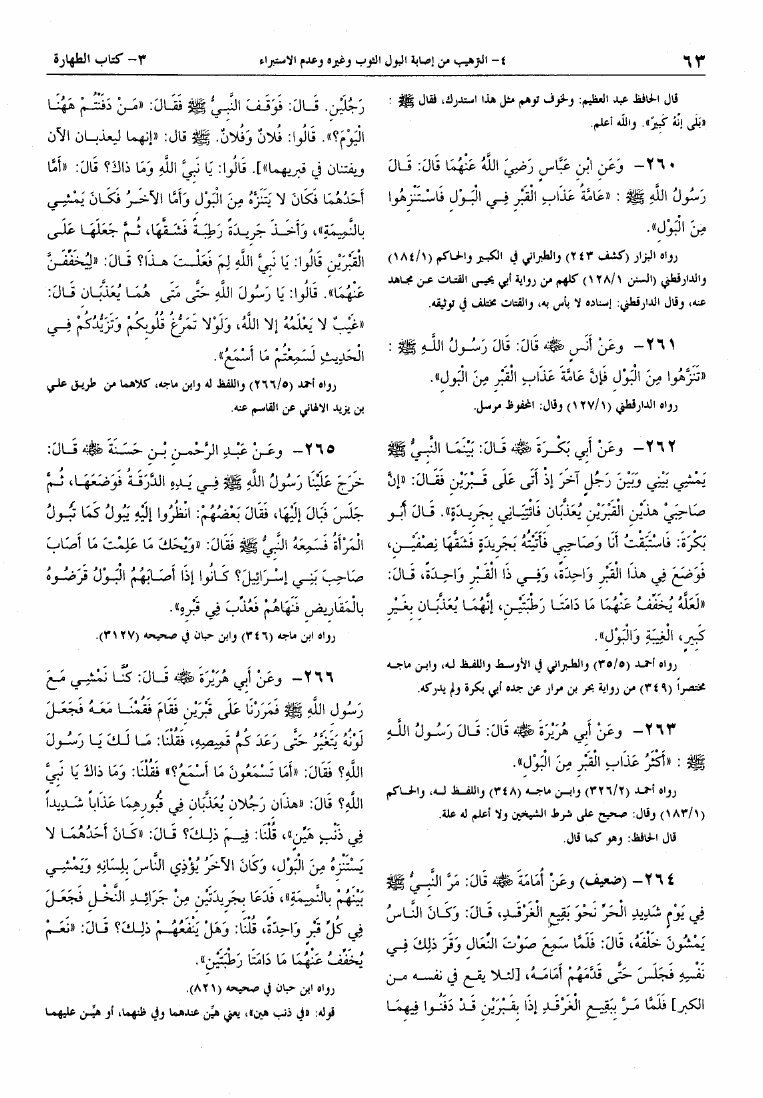 ٦٣
٤- الترهيب من إصابة البول الثوب وغيره وعدم الاستبراء
٣- كتاب الطهارة
قال الحافظ عبد العظيم: ولخوف توهم مثل هذا استدرك، فقال ﷺ :
«بَلَى إنَّهُ كَبِيرٌ». والله أعلم.
٢٦٠- وَعَنِ ابْنِ عَبَّاسٍ رَضِيَ اللَّهُ عَنْهُمَا قَالَ: قَالَ
رَسُولُ اللَّهِ ﷺ : «عَامَّةُ عَذَابِ الْقَبْرِ فِي الْبَوْلِ فَاسْتَنْزِهُوا
مِنَ الْبَوْلِ».
رواه البزار (كشف ٢٤٣) والطبراني في الكبير والحاكم (١٨٤/١)
والدارقطني (السنن ١٢٨/١) كلهم من رواية أبي يحيى القتات عن مجاهد
عنه، وقال الدارقطني: إسناده لا بأس به، والقتات مختلف في توثيقه.
٢٦١- وعَنْ أنَسٍ ﷺ قَالَ: قَالَ رَسُولُ اللَّهِ ﷺ :
«تَنَزَّهُوا مِنَ الْبَوْلِ فَإنَّ عَامَّةَ عَذَابِ الْقَبْرِ مِنَ البَولِ».
رواه الدارقطني (١٢٧/١) وقال: المحفوظ مرسل.
٢٦٢- وعَنْ أبي بَكْرَةَ ﷺ قَالَ: بَيْنَمَا النَّبِيُّ ﷺ
يَمْشِي بَيْنِي وَبَيْنَ رَجُلٍ آخَرَ إذْ أتَى عَلَى قَبْرَيْنِ فَقَالَ: «إنَّ
صَاحِبَيْ هذَيْنِ الْقَبْرَيْنِ يُعَذَّبَانِ فَائْتِيَانِي بِجَرِيدَةٍ». قَالَ أَبُو
بَكْرَةَ: فَاسْتَبَقْتُ أنَا وَصَاحِبي فَأَتَيْتُهُ بِجَرِيدَةٍ فَشَقَّهَا نِصْفَيْنِ،
فَوَضَعَ فِي هذَا الْقَبْرِ وَاحِدَةً، وَفِي ذَا القَبْرِ وَاحِدَةً، قَالَ:
«لَعَلَّهُ يُخَفَّفُ عَنْهُمَا مَا دَامَتَا رَطْبَتَيْنِ، إنَّهُمَا يُعَذَّبَانِ بِغَيْرِ
كَبِيرٍ، الْغِيبَةِ وَالْبَوْلِ».
رواه أحمد (٣٥/٥) والطبراني في الأوسط واللفظ له، وابن ماجه
مختصراً (٣٤٩) من رواية بحر بن مرار عن جده أبي بكرة ولم يدركه.
٢٦٣- وعَنْ أبي هُرَيْرَةَ ﷺ قَالَ: قَالَ رَسُولُ اللَّهِ
ﷺ : «أَكْثَرُ عَذَابِ الْقَبْرِ مِنَ الْبَوْلِ».
رواه أحمد (٣٢٦/٢) وابن ماجه (٣٤٨) واللفظ له، والحاكم
(١٨٣/١) وقال: صحيح على شرط الشيخين ولا أعلم له علة.
قال الحافظ: وهو كما قال.
٢٦٤- (ضعيف) وعَنْ أمَامَةَ ﷺ قَالَ: مَرَّ النَّبِيُّ ﷺ
فِي يَوْمٍ شَدِيدِ الْحَرِّ نَحْوَ بَقِيعِ الْغَرْقَدِ، قَالَ: وَكَانَ النَّاسُ
يَمْشُونَ خَلْفَهُ، قَالَ: فَلَمَّا سَمِعَ صَوْتَ النِّعَالِ وَقَرَ ذلِكَ فِي
نَفْسِهِ فَجَلَسَ حَتَّى قَدَّمَهُمْ أَمَامَهُ، [لئلا يقع في نفسه من
الكبر] فَلَمَّا مَرَّ بِبَقِيعِ الْغَرْقَدِ إذَا بِقَبْرَيْنِ قَدْ دَفَنُوا فِيهِمَا
رَجُلَيْنِ. قَالَ: فَوَقَفَ النَّبِيُّ ﷺ فَقَالَ: «مَنْ دَفَنْتُمْ هَهُنَا
الْيَوْمَ؟». قَالُوا: فُلانٌ وَفُلانٌ. ﷺ قال: «إنهما ليعذبان الآن
ويفتنان في قبريهما»]. قَالُوا: يَا نَبِيَّ اللَّهِ وَمَا ذاكَ؟ قَالَ: «أمَّا
أَحَدُهُمَا فَكَانَ لا يَتَنَزَّهُ مِنَ الْبَوْلِ وَأمَّا الآخَرُ فَكَانَ يَمْشِي
بِالنَّمِيمَةِ»، وَأَخَذَ جَرِيدَةً رَطِبَةً فَشَقَّهَا، ثُمَّ جَعَلَهَا عَلَى
الْقَبْرَيْنِ قَالُوا: يَا نَبِيَّ اللَّهِ لِمَ فَعَلْتَ هذَا؟ قَالَ: «لِيُخَفَّفَنَّ
عَنْهُمَا». قَالُوا: يَا رَسُولَ اللَّهِ حَتَّى مَتَى هُمَا يُعَذَّبَانِ قَالَ:
«غَيْبٌ لا يَعْلَمُهُ إلا اللَّهُ، وَلَوْلا تَمَرُّغُ قُلُوبِكُمْ وَتَزَيُّدُكُمْ فِي
الْحَدِيثِ لَسَمِعْتُمْ مَا أَسْمَعُ».
رواه أحمد (٢٦٦/٥) واللفظ له وابن ماجه، كلاهما من طريق علي
بن يزيد الالهاني عن القاسم عنه.
٢٦٥- وعَنْ عَبْدِ الرَّحْمنِ بْنِ حَسَنَةَ ﷺ قَالَ:
خَرَجَ عَلَيْنَا رَسُولُ اللَّهِ ﷺ فِي يَدِهِ الدَّرَقَةُ فَوَضَعَهَا، ثُمَّ
جَلَسَ فَبَالَ إلَيْهَا، فَقَالَ بَعْضُهُمْ: انْظُرُوا إلَيْهِ يَبُولُ كَمَا تَبُولُ
الْمَرْأَةُ فَسَمِعَهُ النَّبِيُّ ﷺ فَقَالَ: «وَيْحَكَ مَا عَلِمْتَ مَا أصَابَ
صَاحِبَ بَنِي إسْرَائِيلَ؟ كَانُوا إذَا أصَابَهُمُ الْبَوْلُ قَرَضُوهُ
بِالْمَقَارِيضِ فَنَهَاهُمْ فَعُذِّبَ فِي قَبْرِهِ».
رواه ابن ماجه (٣٤٦) وابن حبان في صحيحه (٣١٢٧).
٢٦٦- وعَنْ أبي هُرَيْرَةَ ﷺ قَالَ: كُنَّا نَمْشِي مَعَ
رَسُولِ اللَّهِ ﷺ فَمَرَرْنَا عَلَى قَبْرَيْنِ فَقَامَ فَقُمْنَا مَعَهُ فَجَعَلَ
لَوْنُهُ يَتَغَيَّرُ حَتَّى رَعَدَ كُمُّ قَمِيصِهِ، فَقُلْنَا: مَا لَكَ يَا رَسُولَ
اللَّهِ؟ فَقَالَ: «أمَا تَسْمَعُونَ مَا أَسْمَعُ؟» فَقُلْنَا: وَمَا ذاكَ يَا نَبِيَّ
اللَّهِ؟ قَالَ: «هذَانِ رَجُلانِ يُعَذَّبَانِ فِي قُبُورِهِمَا عَذَاباً شَدِيداً
فِي ذَنْبٍ هَيِّنٍ»، قُلْنَا: فِيمَ ذلِكَ؟ قَالَ: «كَانَ أَحَدُهُمَا لا
يَسْتَنْزِهُ مِنَ الْبَوْلِ، وَكَانَ الآخَرُ يُؤْذِي النَّاسَ بِلِسَانِهِ وَيَمْشِي
بَيْنَهُمْ بِالنَّمِيمَةِ»، فَدَعَا بِجَرِيدَتَيْنِ مِنْ جَرَائِدِ النَّخْلِ فَجَعَلَ
فِي كُلِّ قَبْرٍ وَاحِدَةً، قُلْنَا: وَهَلْ يَنْفَعُهُمْ ذلِكَ؟ قَالَ: «نَعَمْ
يُخَفَّفُ عَنْهُمَا مَا دَامَتَا رَطْبَتَيْنِ».
رواه ابن حبان في صحيحه (٨٢١).
قوله: «في ذنب هين»، يعني هيِّن عندهما وفي ظنهما، أو هيِّن عليهما